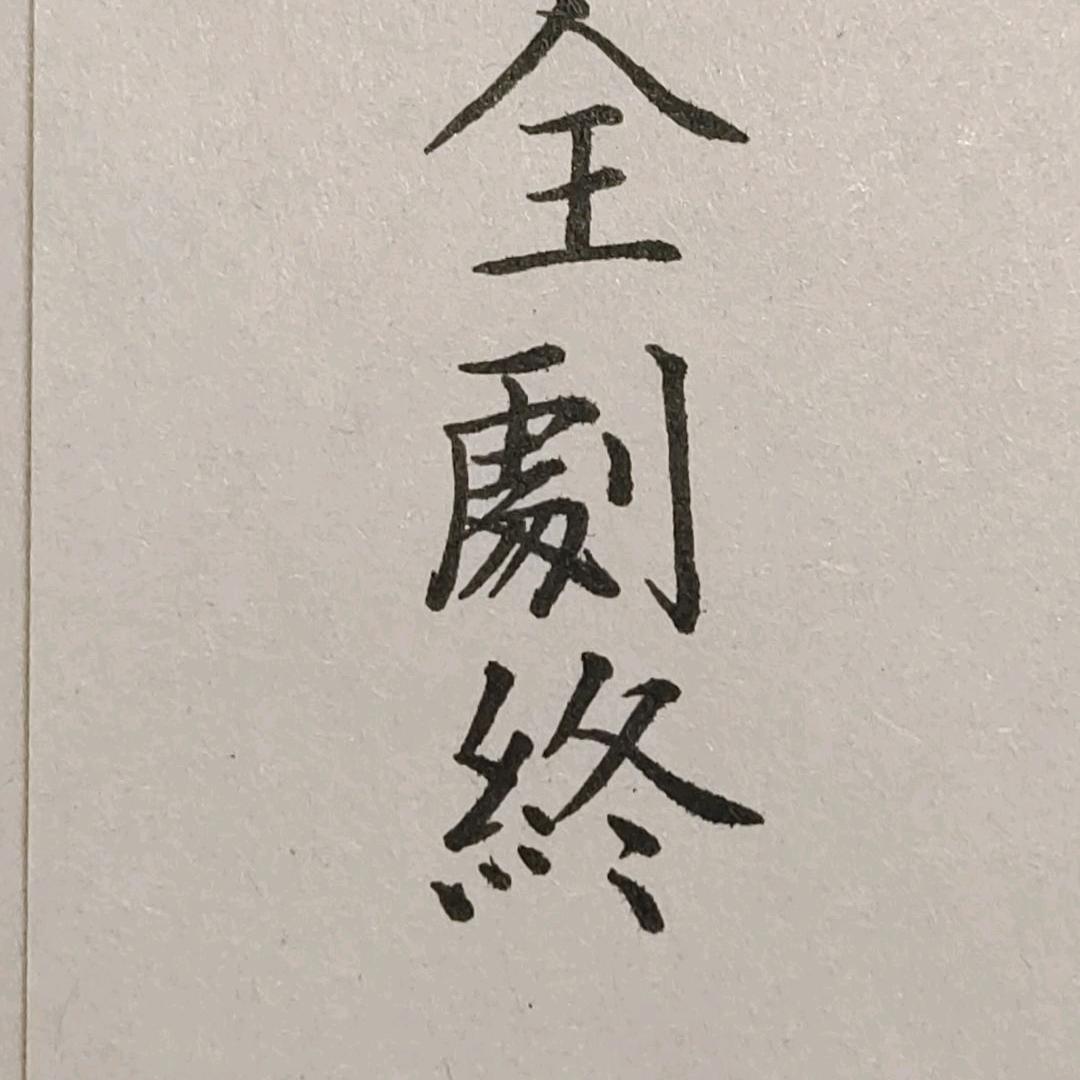 全劇終